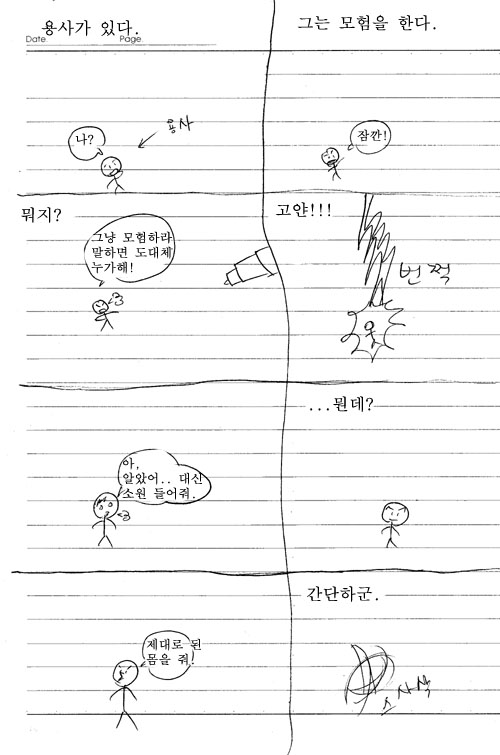 용사가 있다.
Date. Page.
나?
용사
그는 모험을 한다.
잠깐!
뭐지?
그냥 모험하라
말하면 도대체
누가해!
고얀!!!
번쩍
읏
아,
알았어.. 대신
소원 들어줘.
...뭔데?
제대로 된
몸을 줘!
간단하군.
스사삭